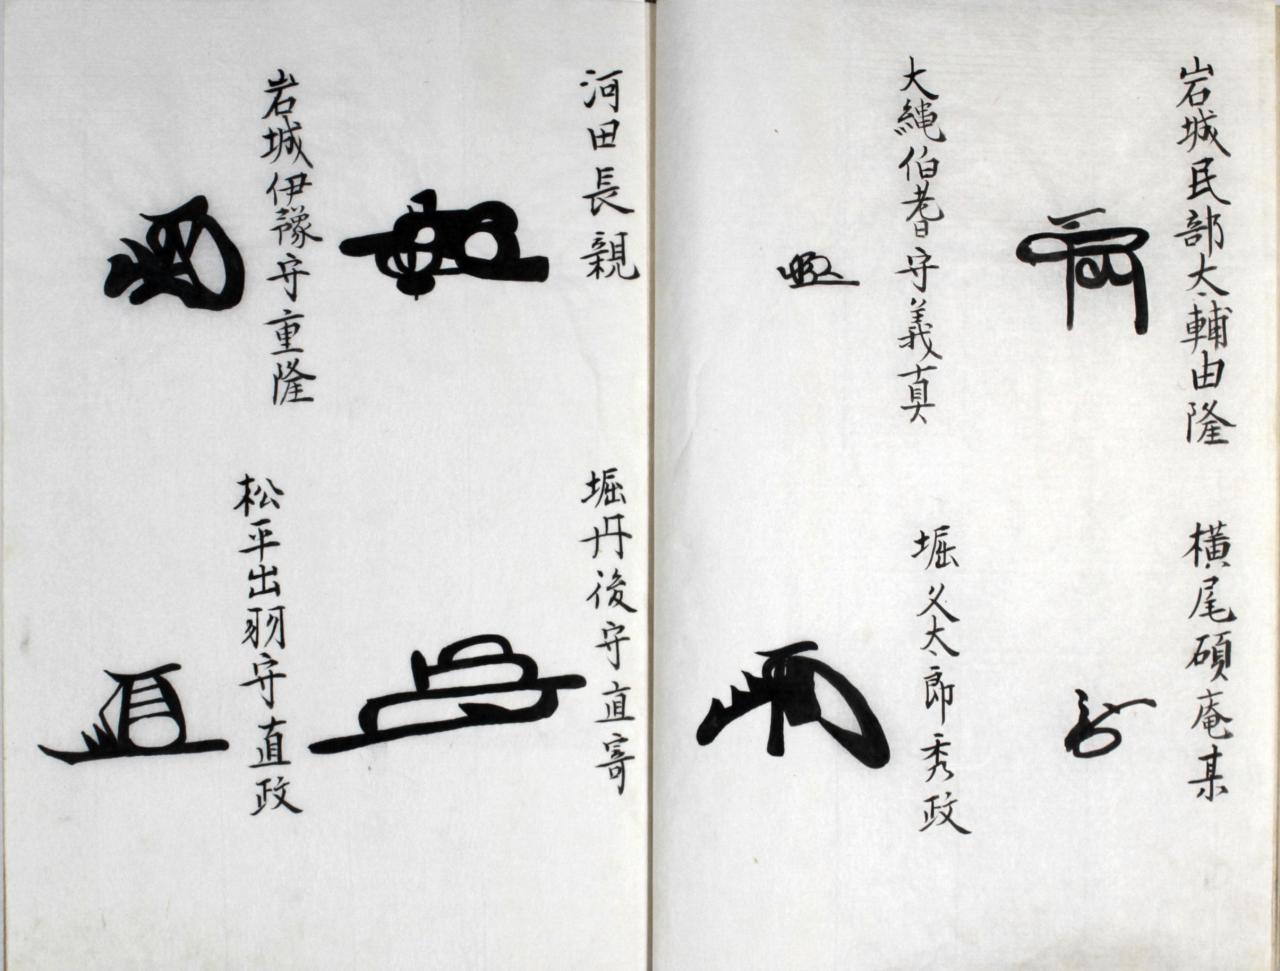 岩城民部太輔由隆
横尾碩庵某
大縄伯耆守義真
堀久太郎秀政
河田長親
堀丹後守直寄
岩城伊豫守重隆
松平出羽守直政